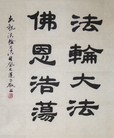 法輪大法
佛恩浩蕩